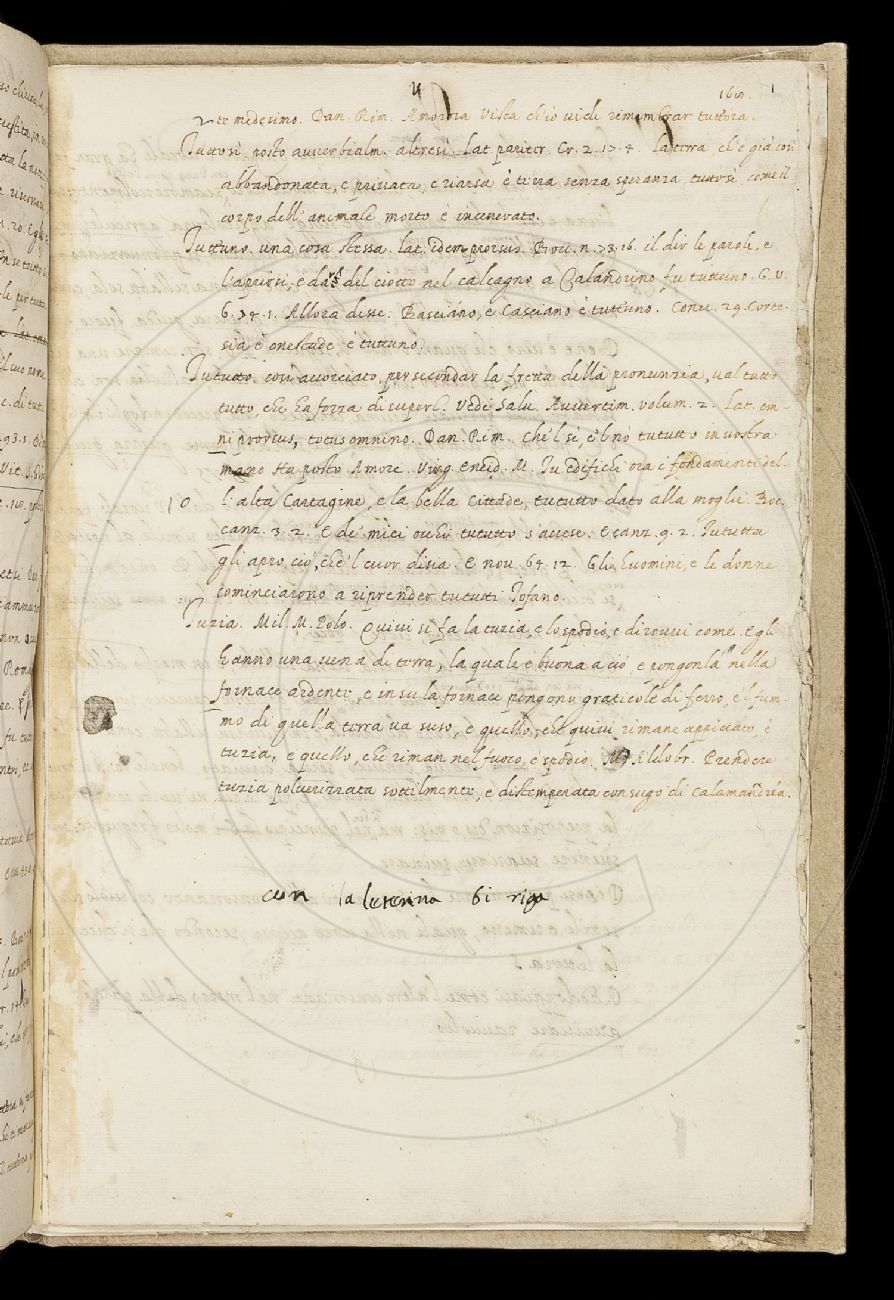 te medesimo. Dan. Rim. Amorosa vista ch'io vidi rimembrar tuttora.
Tuttosì. posto avverbialm. altresì. Lat. pariter. Cr. 2. 17. 4. la terra ch'è già così
abbandonata, e privata, e riarsa è terra senza speranza, tuttosì come il
corpo dell'animale morto è incenerato.
Tuttuno. una cosa stessa. lat. idem prorsus. Bocc. n. 73. 16. il dir le parole, e
l'aprirsi, e dar del ciotto nel calcagno a Calandrino fu tuttuno. G. V.
6. 74. 1. Allora disse: Basciano, e Casciano è tuttuno. Conv. 29. Corte-
sia è onestade, è tuttuno.
Tututto. così accorciato, per secondar la fretta della pronunzia, val tutto
tutto, che ha forza di superl. Vedi Salv. Avvertim. volum. 2. Lat. om-
ni prorsus, totus omnino. Dan. Rim. Che'l sì, e'l nò tututto in vostra
mano Ha posto Amore. Virg. Eneid. M. Tu edifichi ora i fondamenti del-
l'alta Cartagine, e la bella Cittade, tututto dato alla moglie. Boc.
canz. 3. 2. E de' miei occhi tututto s'accese. E canz. 9. 2. Tututta
gli apro ciò, che'l cuor disia. E nov. 64. 12. Gli huomini, e le donne
cominciarono a riprender tututti Tofano.
Tuzia. Mil. M. Polo. Quivi si fa la tuzia, e lo spodio, e dirovvi come. Egli
hanno una vena di terra, la quale è buona a ciò, e pongonla nella
fornace ardente, e in su la fornace pongono graticole di ferro, e'l fum-
mo di quella terra va suso, e quello, che quivi rimane appiccato, è
tuzia, e quello, che riman nel fuoco, è spodio. M. Aldobr. Prendere
tuzia polverizzata sottilmente, e distemperata con sugo di calamandrea.
con la